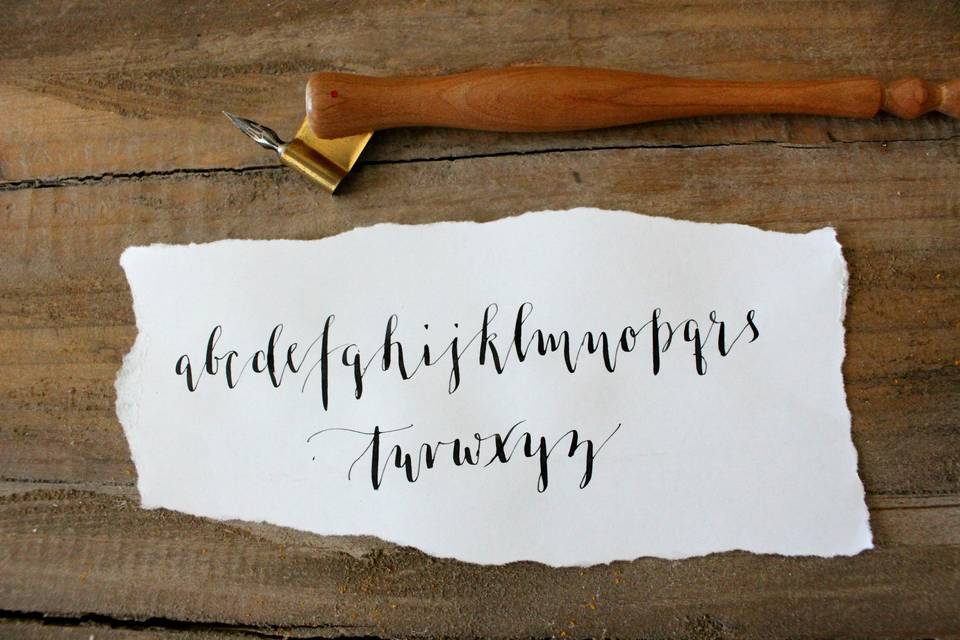 abcdefghijklmnopqrs
tuvwxyz